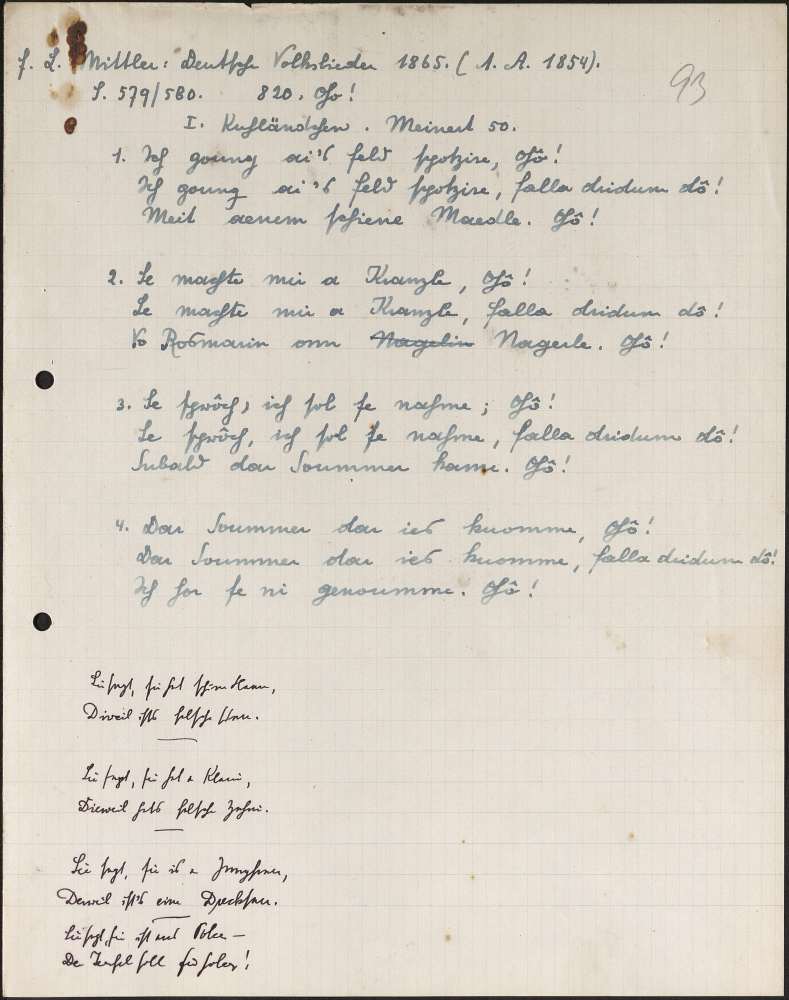 F. L. Mittler: Deutsche Volkslieder 1865. (1. A. 1854).
93
S. 579/580. 820. Oho!
I. Kuhländchen. Meinert 50.
1. Ich goung ai's feld spotzire, Ohô!
Ich goung ai's feld spotzire, falla dridum dô!
Meit aenem schiene Maedle. Ohô!
2. Se machte mir a Kranzle, Ohô!
Se machte mir a Kranzle, falla dridum dô!
Vo Rosmarin onn Nagelin Nagerle. Ohô!
3. Se sprôch, ich sol se nahme; Ohô!
Se sprôch, ich sol se nahme, falla dridum dô!
Subald dar Soummer kame. Ohô!
4. Dar Soummer dar ies kuomme, Ohô!
Dar Soummer dar ies kuomme, falla dridum dô!
Ich hor se ni genoumme. Ohô!
Sie sagt, sie hat schene Haar,
Diweil ists falsche War.
Sie sagt, sie hat a
Dieweil hats falsche
Sie sagt, sie is a Jungfrau,
Derweil ist's eine Drecksau.
Sie sagt, sie ist aus Polen –
Der Teufel soll sie holen!